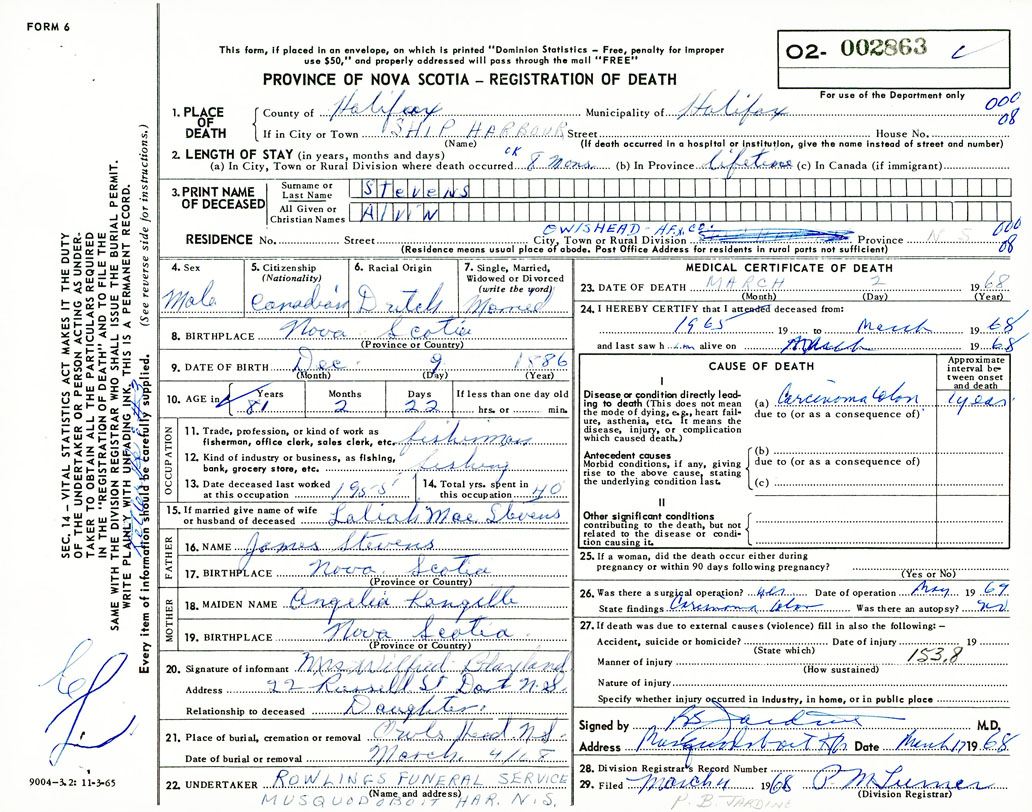 FORM 6
This form, if placed in an envelope, on which is printed "Dominion Statistics – Free, penalty for improper
use $50," and properly addressed will pass through the mail "FREE"
PROVINCE OF NOVA SCOTIA – REGISTRATION OF DEATH
O2- 002863
For use of the Department only
000
08
1. PLACE OF DEATH
County of Halifax Municipality of Halifax
If in City or Town SHIP HARBOUR Street House No.
(Name) (If death occurred in a hospital or institution, give the name instead of street and number)
2. LENGTH OF STAY (in years, months and days)
(a) In City, Town or Rural Division where death occurred 8 mons. (b) In Province lifetime (c) In Canada (if immigrant)
3. PRINT NAME OF DECEASED
Surname or Last Name Stevens
All Given or Christian Names Alvin
OWLSHEAD - Hfx. Co.
RESIDENCE No. Street City, Town or Rural Division Province N S
000
08
(Residence means usual place of abode. Post Office Address for residents in rural parts not sufficient)
4. Sex
Male
5. Citizenship (Nationality)
Canadian
6. Racial Origin
Dutch
7. Single, Married, Widowed or Divorced (write the word)
Married
8. BIRTHPLACE Nova Scotia
(Province or Country)
9. DATE OF BIRTH Dec. 9 1886
(Month) (Day) (Year)
10. AGE in Years Months Days If less than one day old
81 2 22 hrs. or min.
OCCUPATION
11. Trade, profession, or kind of work as
fisherman, office clerk, sales clerk, etc. fisherman
12. Kind of industry or business, as fishing,
bank, grocery store, etc. fishing
13. Date deceased last worked at this occupation 1955
14. Total yrs. spent in this occupation 40
15. If married give name of wife
or husband of deceased Laliah Mae Stevens
FATHER
16. NAME James Stevens
17. BIRTHPLACE Nova Scotia
(Province or Country)
MOTHER
18. MAIDEN NAME Angelia Langille
19. BIRTHPLACE Nova Scotia
(Province or Country)
20. Signature of informant Mrs Wilfred
Address 22 Russell St Dart N.S.
Relationship to deceased Daughter
21. Place of burial, cremation or removal Owls Head N.S.
Date of burial or removal March 4/68
22. UNDERTAKER ROWLINGS FUNERAL SERVICE
(Name and address)
MUSQUODOBOIT HAR. N.S.
MEDICAL CERTIFICATE OF DEATH
23. DATE OF DEATH MARCH 2 1968
(Month) (Day) (Year)
24. I HEREBY CERTIFY that I attended deceased from:
1965 19 to March 1968
and last saw h im alive on March 1968
CAUSE OF DEATH
Approximate interval between onset and death
I
Disease or condition directly leading to death (This does not mean the mode of dying, e.g., heart failure, asthenia, etc. It means the disease, injury, or complication which caused death.)
(a) Carcinoma Colon 1 year
due to (or as a consequence of)
Antecedent causes
Morbid conditions, if any, giving rise to the above cause, stating the underlying condition last.
(b)
due to (or as a consequence of)
(c)
II
Other significant conditions
contributing to the death, but not related to the disease or condition causing it.
25. If a woman, did the death occur either during
pregnancy or within 90 days following pregnancy?
(Yes or No)
26. Was there a surgical operation? yes Date of operation May 19 67
State findings Carcinoma Colon Was there an autopsy? no
27. If death was due to external causes (violence) fill in also the following: –
Accident, suicide or homicide? Date of injury 19
(State which)
Manner of injury 153.8
(How sustained)
Nature of injury
Specify whether injury occurred in industry, in home, or in public place
Signed by RS Jardine M.D.
Address Musquodoboit Hbr Date March 17 1968
28. Division Registrar's Record Number
29. Filed March 4 1968 P M Turner
(Division Registrar)
P. B. JARDINE
SEC. 14 – VITAL STATISTICS ACT MAKES IT THE DUTY
OF THE UNDERTAKER OR PERSON ACTING AS UNDERTAKER
TO OBTAIN ALL THE PARTICULARS REQUIRED
IN THE "REGISTRATION OF DEATH" AND TO FILE THE
SAME WITH THE DIVISION REGISTRAR WHO SHALL ISSUE THE BURIAL PERMIT.
WRITE PLAINLY WITH UNFADING INK. THIS IS A PERMANENT RECORD.
Every item of information should be carefully supplied. (See reverse side for instructions.)
9004-3.2: 11-3-65